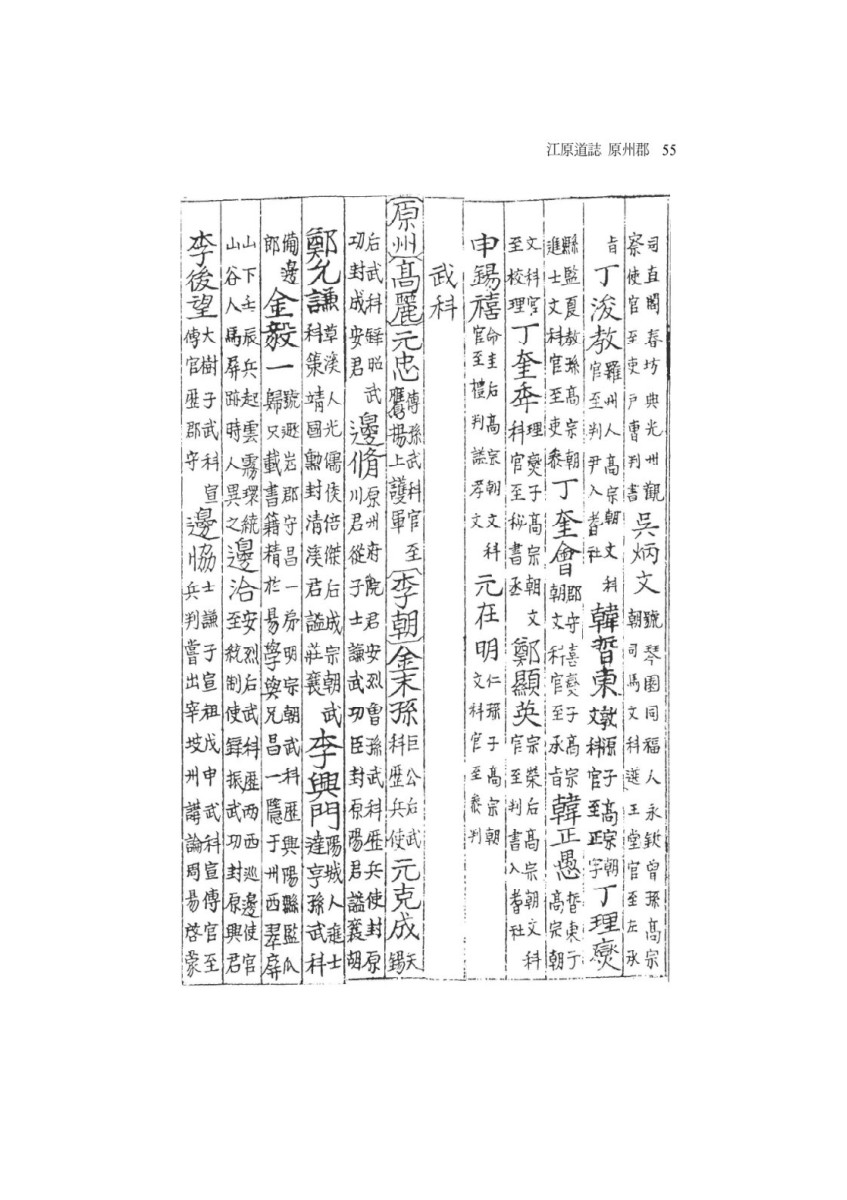 江原道誌 原州郡 55
司直閣春坊興光州觀察使官至吏戶曹判書 吳炳文 號琴園同福人永欽曾孫高宗朝司馬文科選玉堂官至左承
旨 丁浚教 羅州人高宗朝文科官至判尹入耆社 韓晳東 敦源子高宗朝文科官至正字 丁理燮
縣監夏教孫高宗朝進士文科官至吏參 丁奎會 郡守喜燮子高宗朝文科官至承旨 韓正愚 晳東子高宗朝
文科官至校理 丁奎秊 理燮子高宗朝文科官至秘書丞 鄭顯英 宗榮后高宗朝文科官至判書入耆社
申錫禧 命圭后高宗朝文科官至禮判諡孝文 元在明 仁孫子高宗朝文科官至參判
武科
原州 高麗 元忠 傅孫武科官至鷹揚上護軍 李朝 金末孫 巨公后武科歷兵使 元克成 天錫
后武科錄昭武功封成安君 邊脩 原州府院君安烈曾孫武科歷兵使封原川君從子士謙武功臣封原陽君諡襄胡
鄭允謙 草溪人光儒侯倍傑后成宗朝武科策靖國勳封清溪君諡莊襄 李興門 陽城人進士達亨孫武科
備邊郎 金毅一 號遯岩郡守昌一弟明宗朝武科歷興陽縣監瓜歸又載書籍精於易學與兄昌一隱于州西翠屏
山下壬辰兵起雲霧環繞山谷人馬屏跡時人異之 邊洽 安烈后武科歷兩西巡邊使官至統制使錄振武功封原興君
李後望 大樹子武科宣傳官歷郡守 邊恊 士謙子宣祖戊申武科宣傳官至兵判嘗出宰坡州講論周易啓蒙